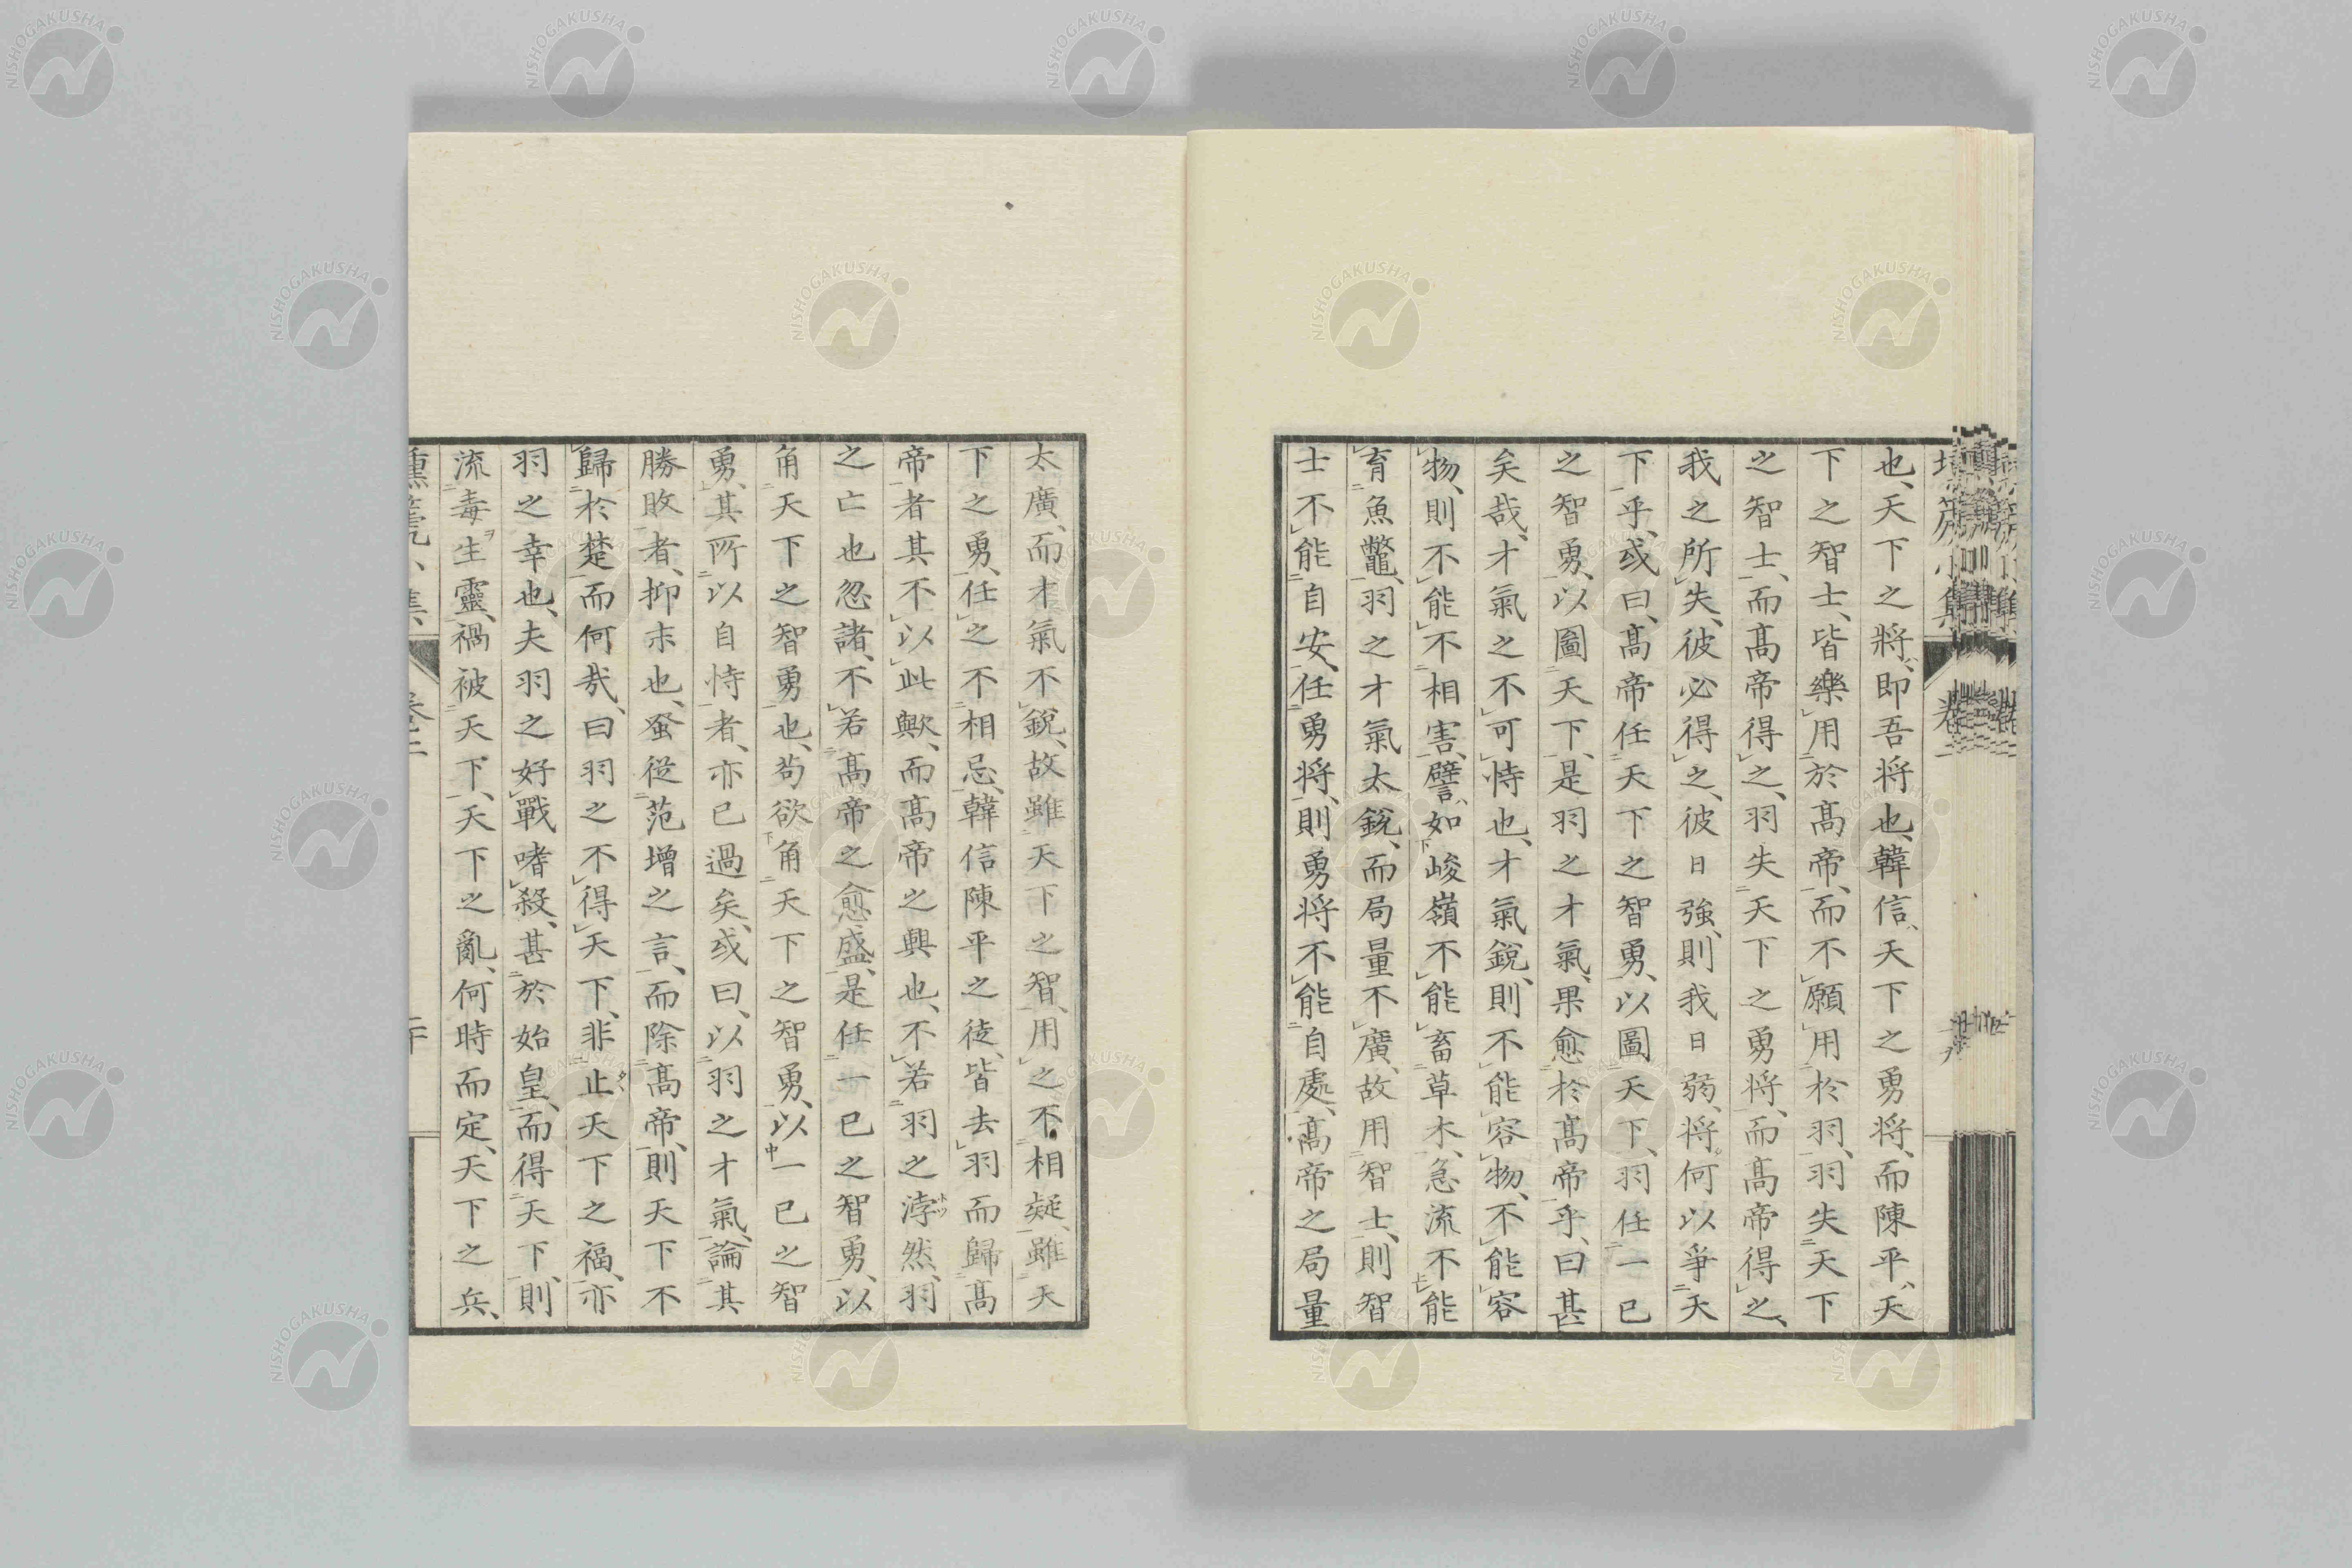 也、天下之將、即吾將也、韓信、天下之勇將、而陳平、天
下之智士、皆樂用於高帝、而不願用於羽、羽失天下
之智士、而高帝得之、羽失天下之勇將、而高帝得之、
我之所失、彼必得之、彼日強、則我日弱、將何以爭天
下乎、或曰、高帝任天下之智勇、以圖天下、羽任一己
之智勇、以圖天下、是羽之才氣、果愈於高帝乎、曰甚
矣哉、才氣之不可恃也、才氣銳、則不能容物、不能容
物、則不能不相害、譬如峻嶺不能畜草木、急流不能
育魚鼈、羽之才氣太銳、而局量不廣、故用智士、則智
士不能自安、任勇將、則勇將不能自處、高帝之局量
太廣、而才氣不銳、故雖天下之智、用之不相疑、雖天
下之勇、任之不相忌、韓信陳平之徒、皆去羽而歸高
帝者其不以此歟、而高帝之興也、不若羽之浡然、羽
之亡也忽諸、不若高帝之愈盛、是任一己之智勇、以
角天下之智勇也、苟欲角天下之智勇、以一己之智
勇、其所以自恃者、亦已過矣、或曰、以羽之才氣、論其
勝敗者、抑末也、蚤從范增之言、而除高帝、則天下不
歸於楚而何哉、曰羽之不得天下、非止天下之福、亦
羽之幸也、夫羽之好戰嗜殺、甚於始皇、而得天下、則
流毒生靈、禍被天下、天下之亂、何時而定、天下之兵、
NISHOGAKUSHA